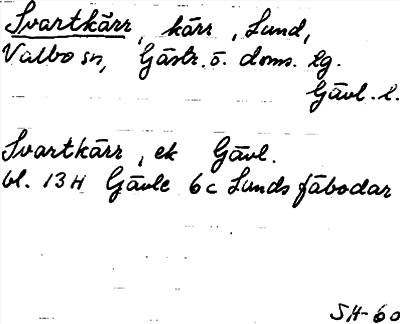 Svartkärr, kärr, Lund,
Valbo sn, Gästr. ö. doms. lg.
Gävl. l.
Svartkärr, ek Gävl.
bl. 13H Gävle 6c Lunds fäbodar
SH-60